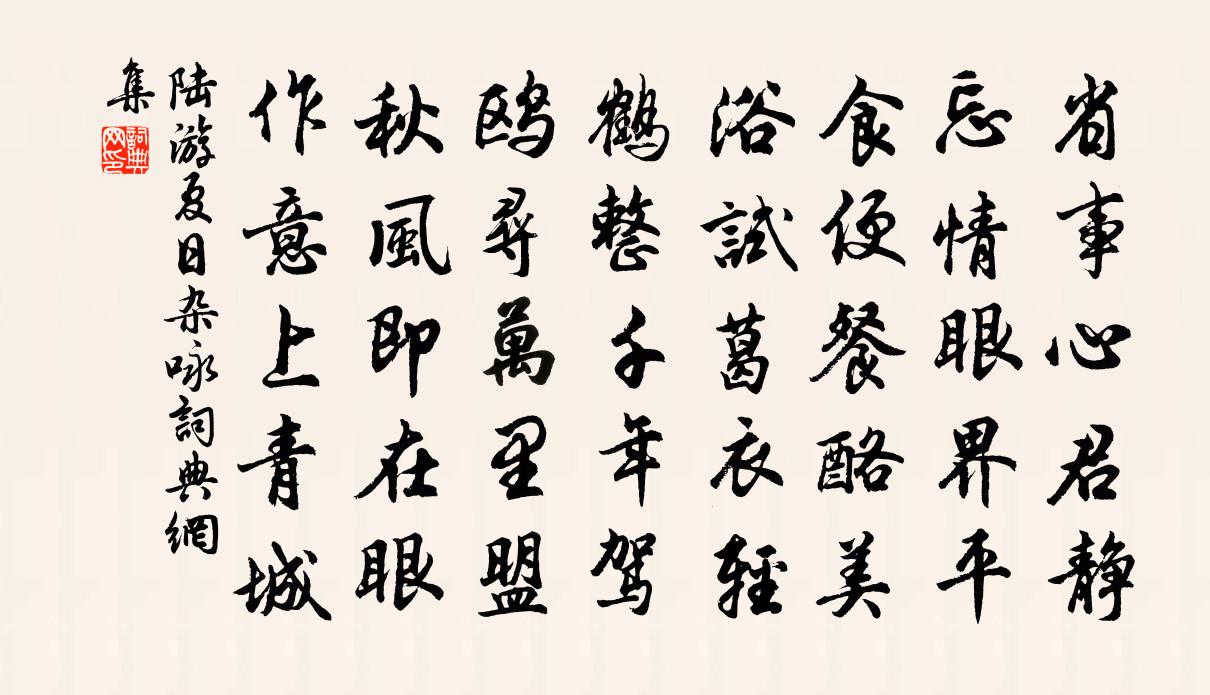 省事心君静
忘情眼界平
食便餐酪美
浴試葛衣輕
鶴整千年駕
鸥尋萬里盟
秋風即在眼
作意上青城
陆游夏日杂咏詞典網
集
詞典
网印